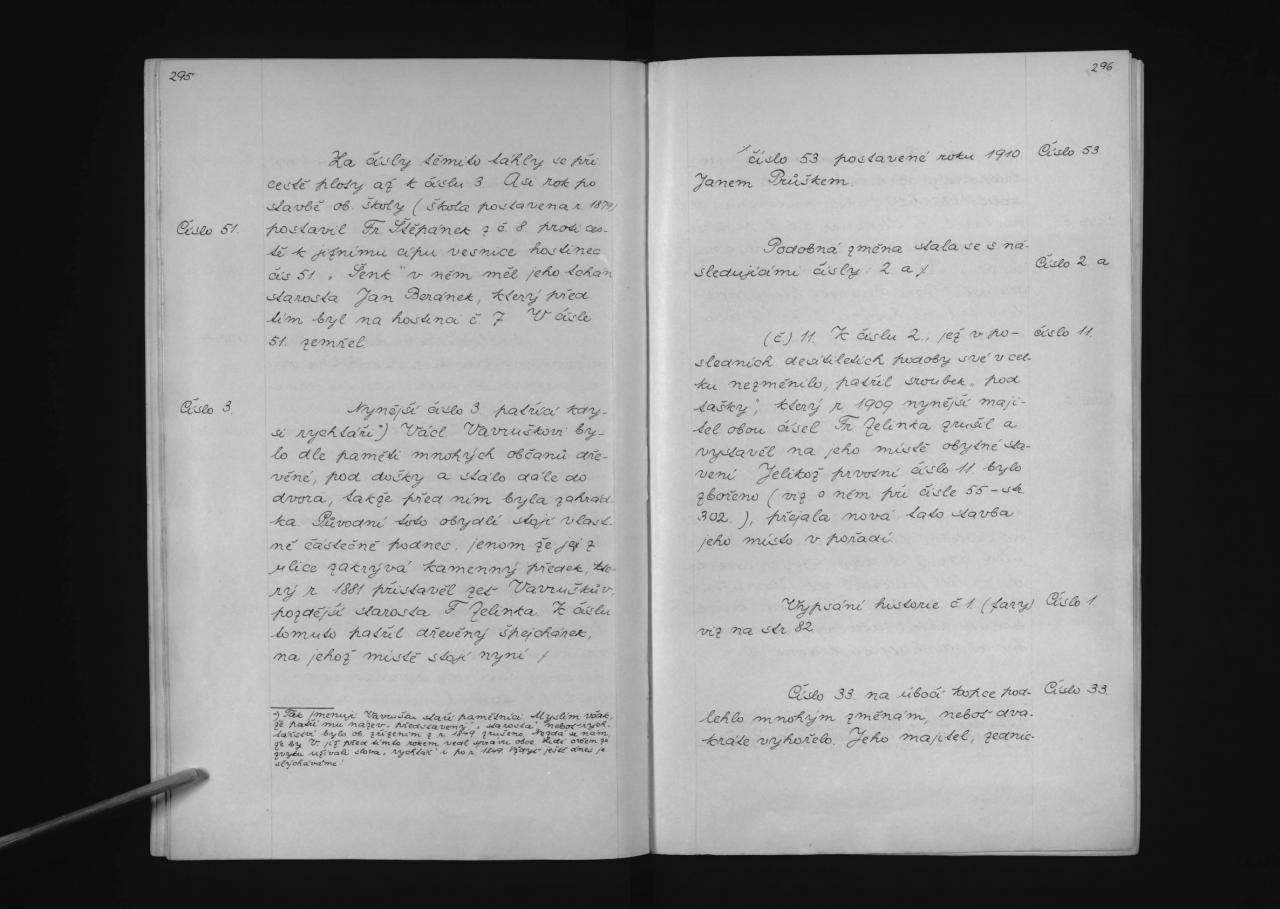 295
Za čísly těmito táhly se při
cestě ploty až k číslu 3. Asi rok po
stavbě ob. školy (škola postavena r. 1879)
Číslo 51.
postavil Fr. Štěpánek z č. 8. proti ces-
tě k jižnímu cípu vesnice hostinec
čís 51. „Šenk" v něm měl jeho tchán
starosta Jan Beránek, který před
tím byl na hostinci č. 7. V čísle
51. zemřel.
Číslo 3.
Nynější číslo 3. patřící kdy-
si rychtáři*) Václ. Vavruškovi by-
lo dle paměti mnohých občanů dře-
věné, pod došky a stálo dále do
dvora, takže před ním byla zahrád-
ka. Původní toto obydlí stojí vlast-
ně částečně podnes, jenom že jej z
ulice zakrývá kamenný předek, kte-
rý r. 1881 přistavěl zeť Vavruškův,
pozdější starosta F. Zelinka. K číslu
tomuto patřil dřevěný špejchárek,
na jehož místě stojí nyní /
*) Tak jmenují Vavrušku staří pamětníci. Myslím však,
že patří mu název „představený", „starosta" neboť rych-
tářství bylo ob. zřízením z r. 1849 zrušeno. Nezdá se nám,
že by V. již před tímto rokem vedl správu obce. Lidé ovšem ze
zvyku užívali slova „rychtář" i po r. 1849. Vždyť ještě dnes je
slýcháváme!
296
/ číslo 53 postavené roku 1910
Číslo 53.
Janem Průškem.
Podobná změna stala se s ná-
sledujícími čísly: 2. a /
Číslo 2. a
(č.) 11. K číslu 2., jež v po-
číslo 11.
sledních desítiletích podoby své v cel-
ku nezměnilo, patřil sroubek „pod
tašky", který r. 1909 nynější maji-
tel obou čísel Fr. Zelinka zrušil a
vystavěl na jeho místě obytné sta-
vení. Jelikož prvotní číslo 11 bylo
zbořeno (viz o něm při čísle 55 – str.
302.), přejala nová tato stavba
jeho místo v pořadí.
Vypsání historie č. 1. (fary)
Číslo 1.
viz na str. 82.
Číslo 33. na úbočí kopce pod-
Číslo 33.
lehlo mnohým změnám, neboť dva-
kráte vyhořelo. Jeho majitel, zednic-